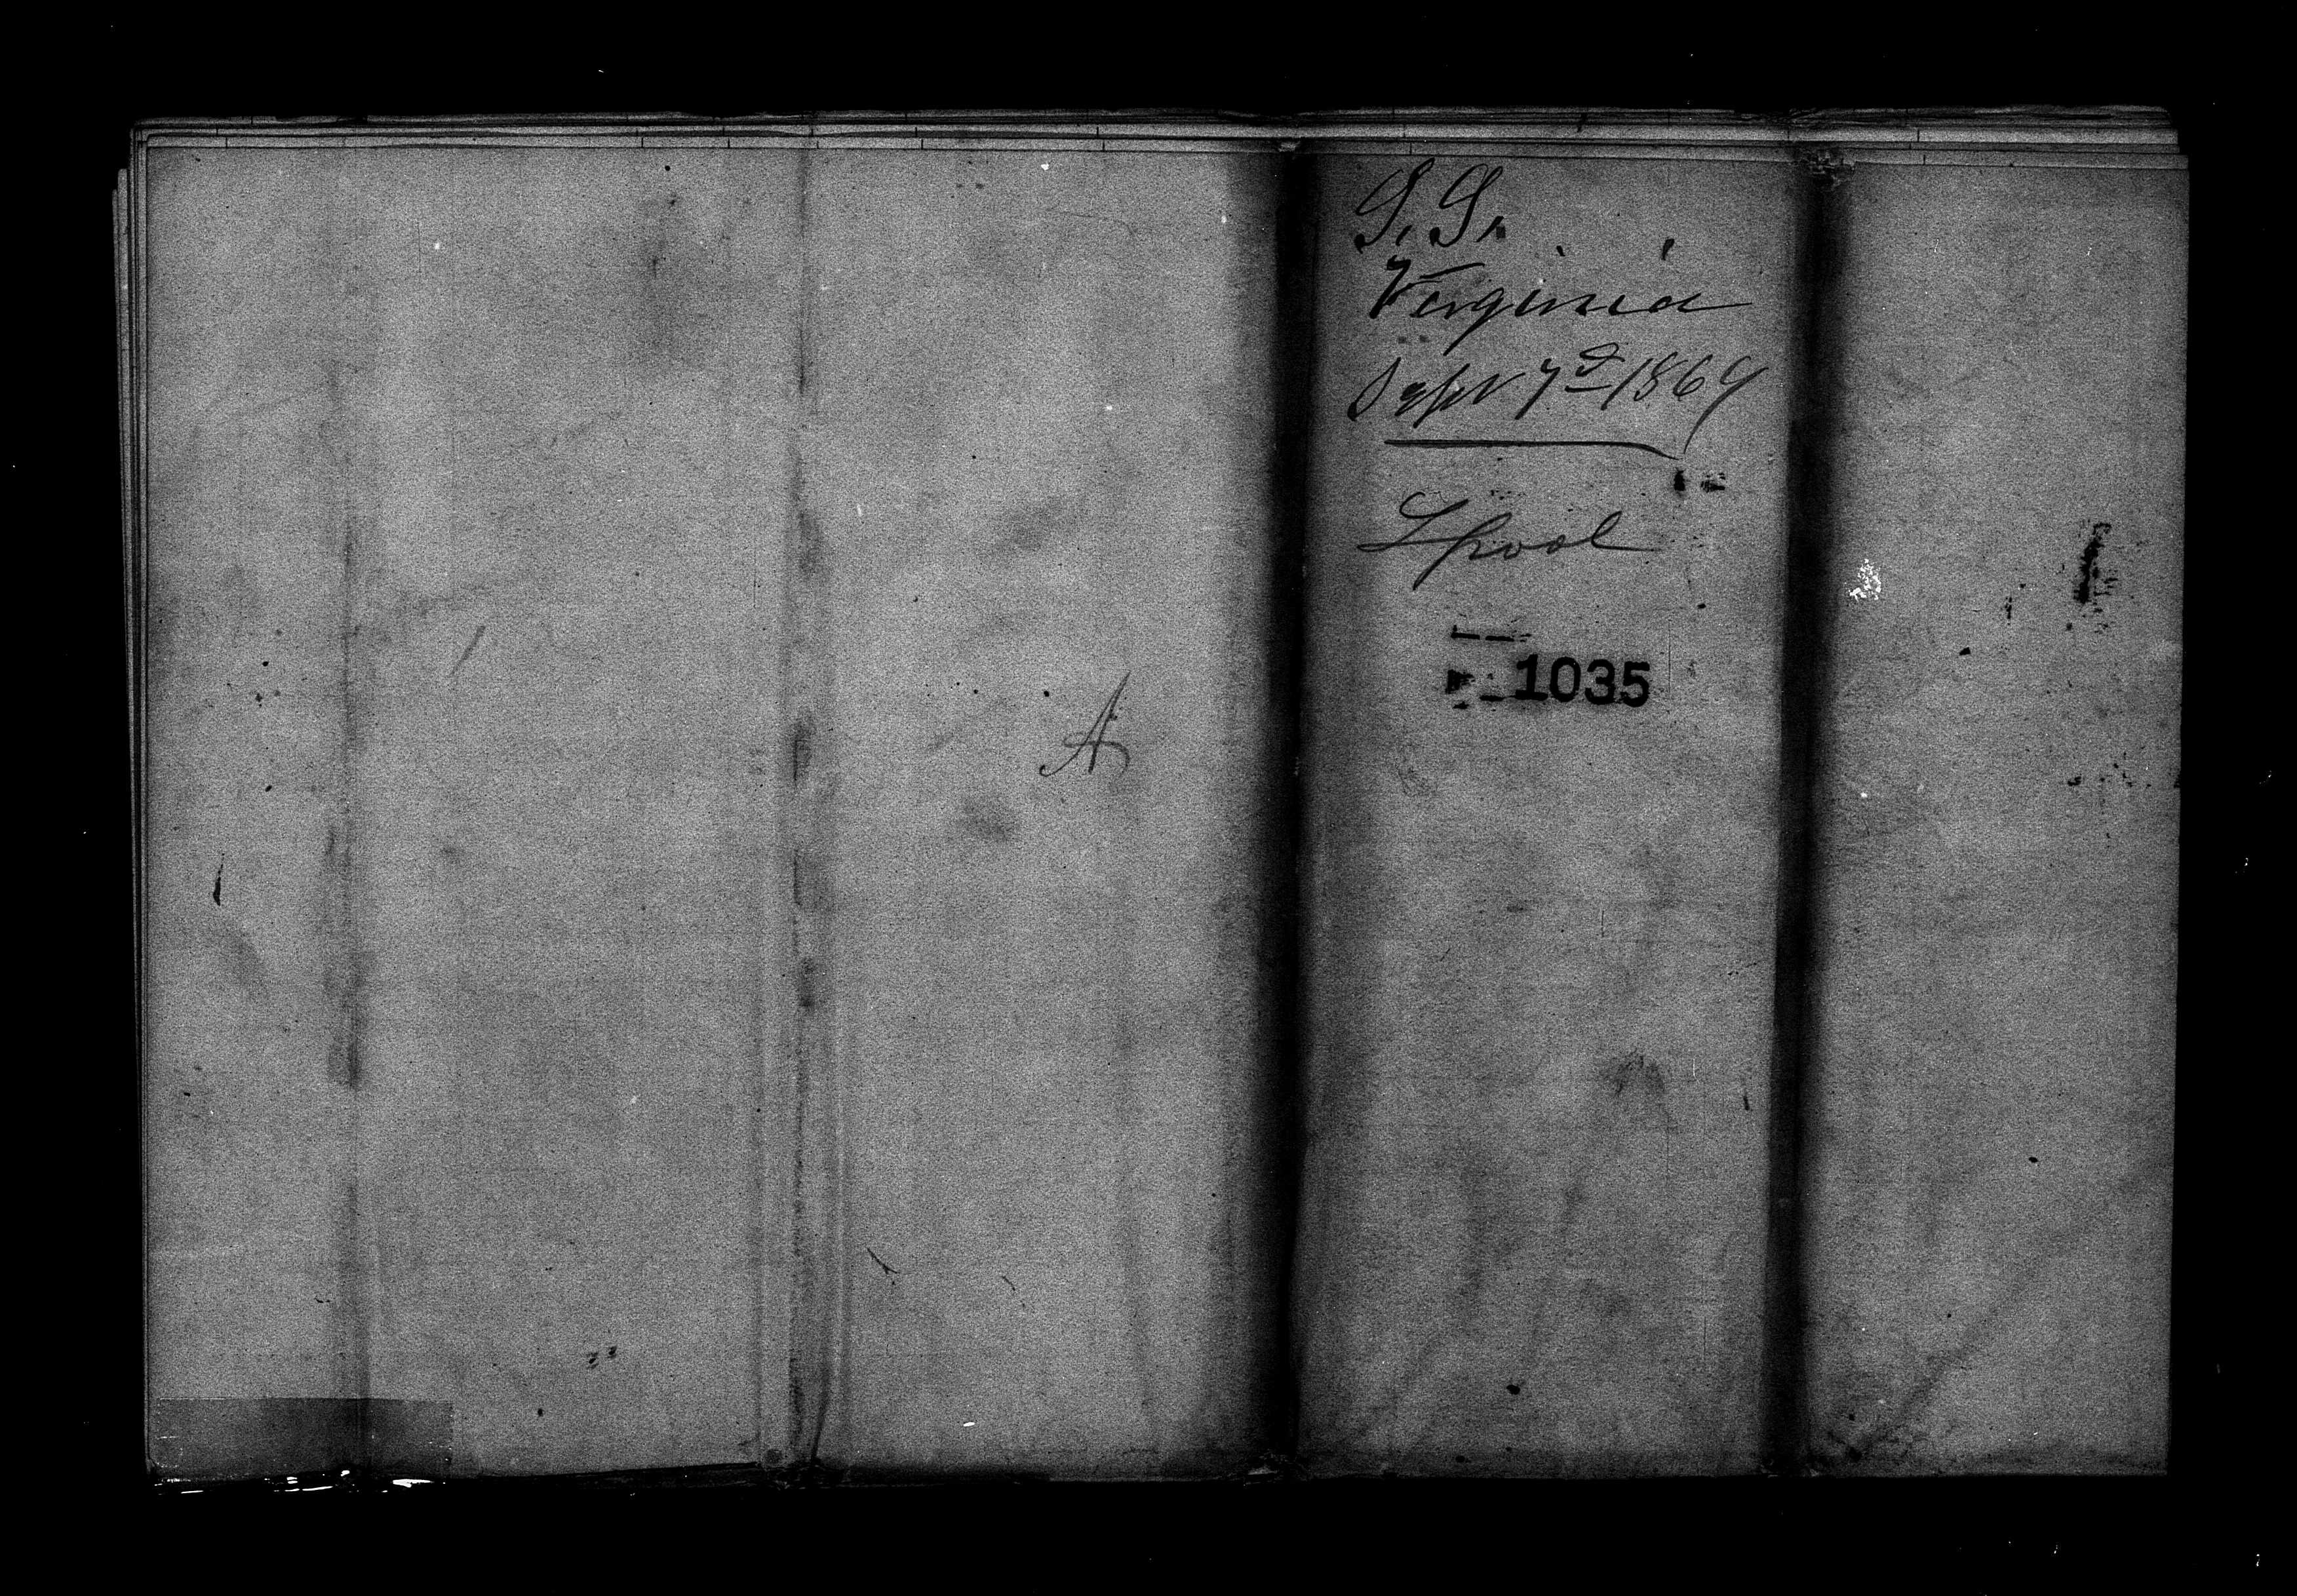 S. S.
Virginia
Sept. 7th 1869
L'pool
1035
A